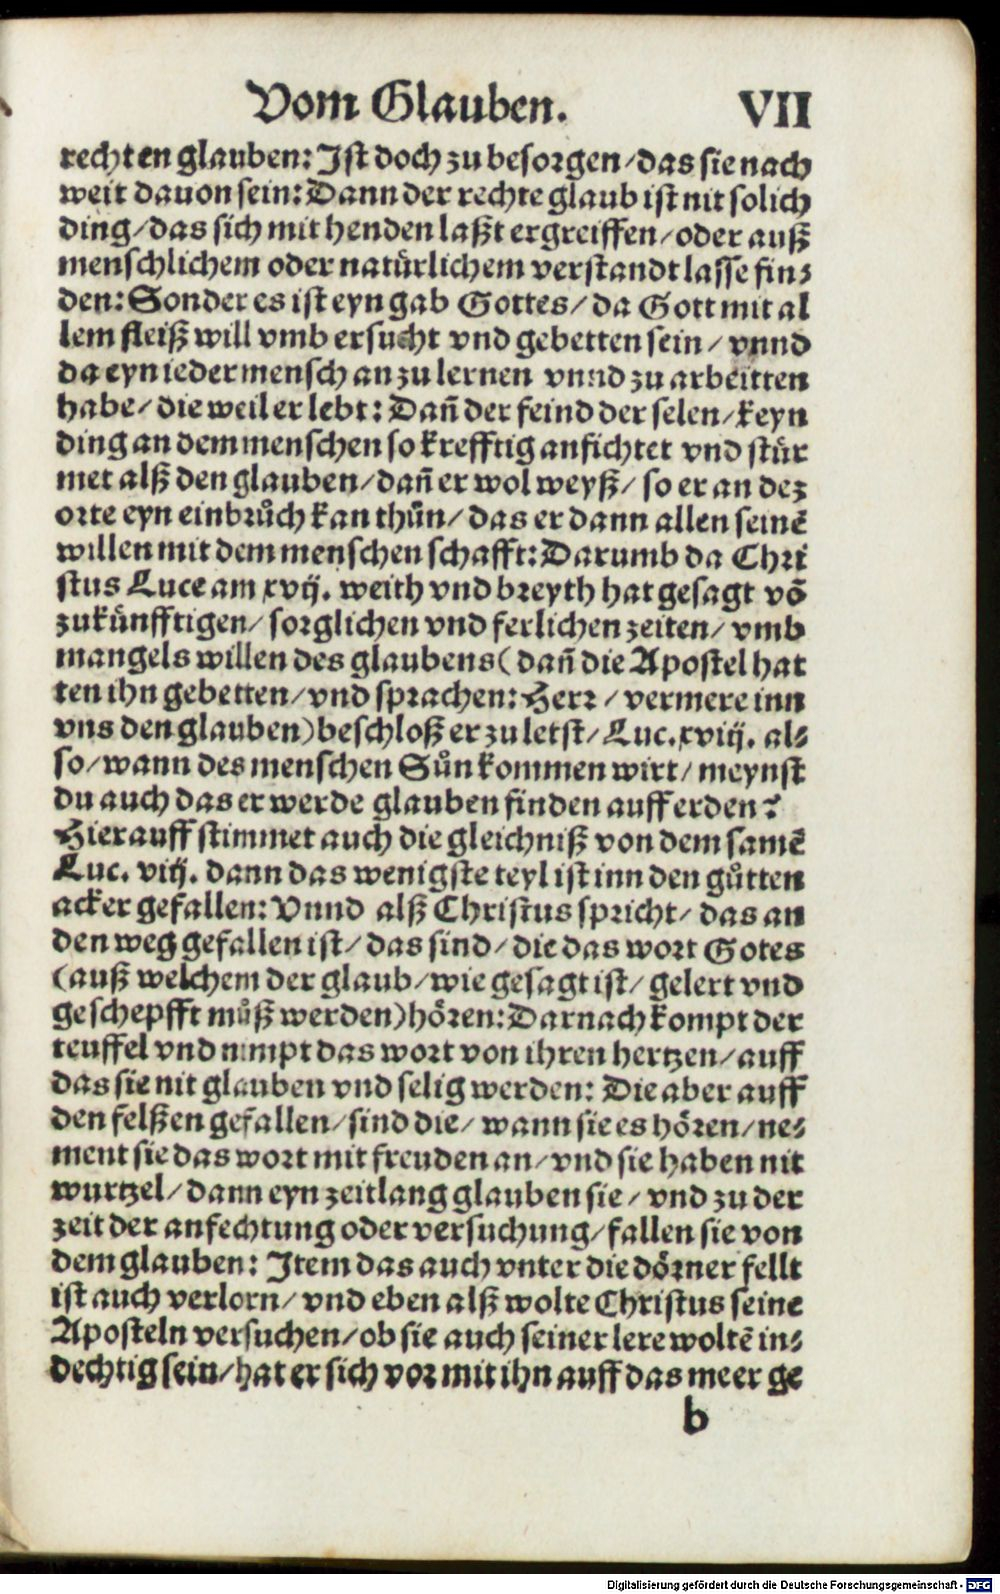 Vom Glauben. VII
rechten glauben: Jst doch zu besorgen/das sie nach
weit dauon sein: Dann der rechte glaub ist nit solich
ding/das sich mit henden laßt ergreiffen/oder auß
menschlichem oder natürlichem verstandt lasse fin⸗
den: Sonder es ist eyn gab Gottes/da Gott mit al
lem fleiß will vmb ersucht vnd gebetten sein/vnnd
da eyn ieder mensch an zu lernen vnnd zu arbeitten
habe/die weil er lebt: Dañ der feind der selen/keyn
ding an dem menschen so krefftig anfichtet vnd stür
met alß den glauben/dañ er wol weyß/so er an dez
orte eyn einbrůch kan thůn/das er dann allen seinē
willen mit dem menschen schafft: Darumb da Chri
stus Luce am xvij. weith vnd breyth hat gesagt võ
zukünfftigen/sorglichen vnd ferlichen zeiten/vmb
mangels willen des glaubens(dañ die Apostel hat
ten ihn gebetten/vnd sprachen: Herr/vermere inn
vns den glauben)beschloß er zu letst/Luc.xviij. al⸗
so/wann des menschen Sůn kommen wirt/meynst
du auch das er werde glauben finden auff erden?
Hierauff stimmet auch die gleichniß von dem samē
Luc. viij. dann das wenigste teyl ist inn den gůtten
acker gefallen: Vnnd alß Christus spricht/das an
den weg gefallen ist/das sind/die das wort Gotes
(auß welchem der glaub/wie gesagt ist/gelert vnd
geschepfft můß werden)hören: Darnach kompt der
teuffel vnd nimpt das wort von ihren hertzen/auff
das sie nit glauben vnd selig werden: Die aber auff
den felßen gefallen/sind die/wann sie es hören/ne⸗
ment sie das wort mit freuden an/vnd sie haben nit
wurtzel/dann eyn zeitlang glauben sie/vnd zu der
zeit der anfechtung oder versuchung/fallen sie von
dem glauben: Jtem das auch vnter die dörner fellt
ist auch verlorn/vnd eben alß wolte Christus seine
Aposteln versuchen/ob sie auch seiner lere woltē in⸗
dechtig sein/hat er sich vor mit ihn auff das meer ge
b
Digitalisierung gefördert durch die Deutsche Forschungsgemeinschaft - DFG